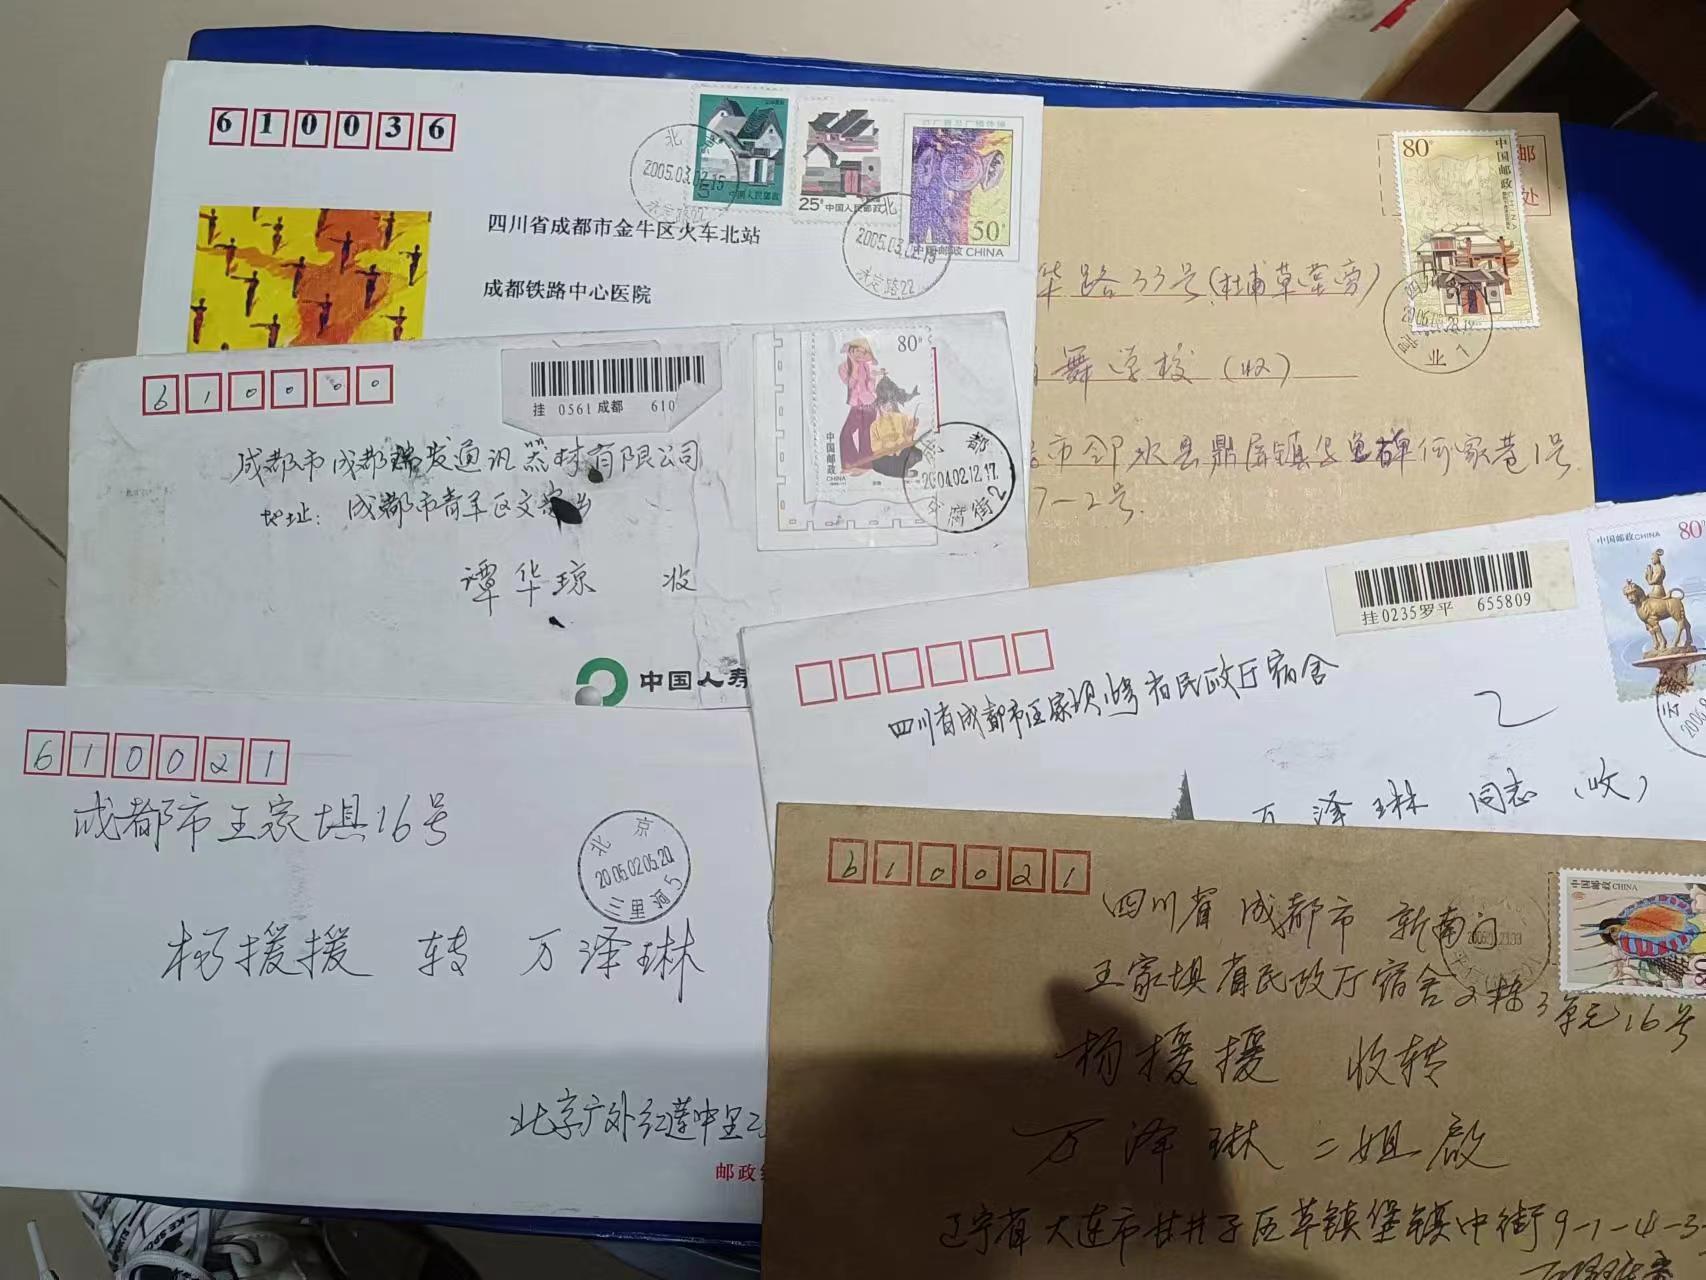 610036
北
2005.03.02.15
永定路22
中国人民邮政
25分 中国人民邮政
50分
中国邮政 CHINA
北
永定路22
四川省成都市金牛区火车北站
成都铁路中心医院
80分
中国邮政
邮
处
四
业1
华路33号(杜甫草堂旁)
舞学校(收)
市邻水县鼎屏镇
何家巷1号
7-2号
610000
挂 0561 成都 610
80分
中国邮政
CHINA
成都
2004.02.12.17
文腐街2
成都市成都瑞发通讯器材有限公司
地址: 成都市青羊区文家乡
谭华琼 收
中国人寿
挂0235罗平 655809
中国邮政CHINA 80分
云
四川省成都市王家坝 省民政厅宿舍
万泽琳 同志(收)
610021
成都市王家埧16号
北京
2005.02.05.20
三里河5
杨援援 转 万泽琳
北京广外红莲中里
邮政
610021
中国邮政 CHINA
四川省成都市新南门
王家埧省民政厅宿舍2栋3单元16号
杨援援 收转
万泽琳二姐启
辽宁省大连市甘井子区革镇堡镇中街9-1-4-3